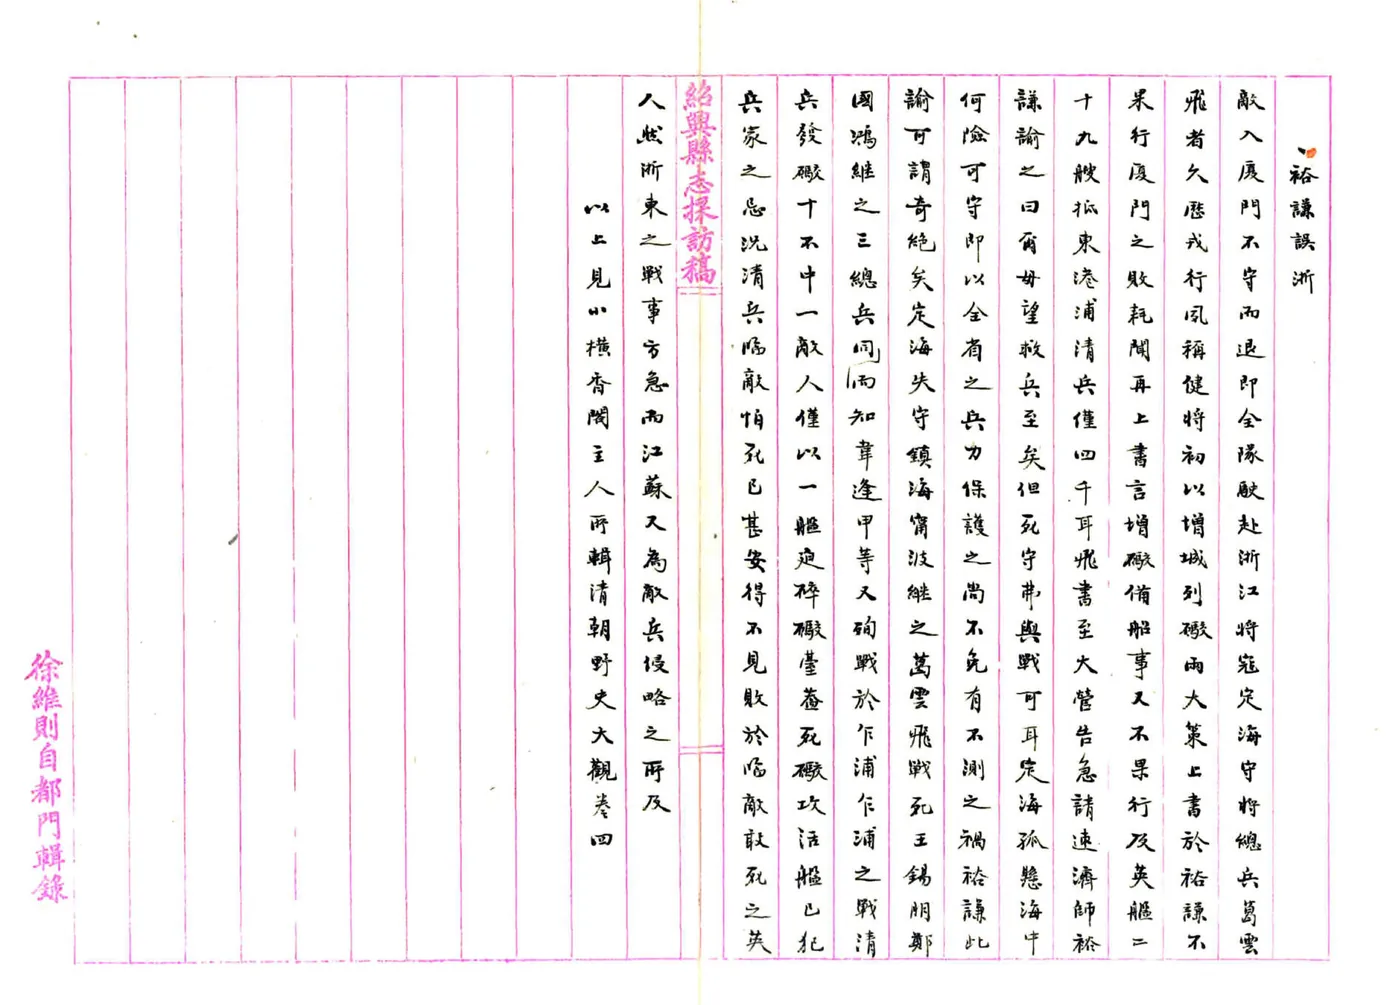 裕謙誤浙
敵入廈門不守而退即全隊駛赴浙江將寇定海守將總兵葛雲
飛者久歷戎行夙稱健將初以增城列礮兩大策上書於裕謙不
果行廈門之敗耗聞再上書言增礮備船事又不果行及英艦二
十九艘抵東港浦清兵僅四千耳飛書至大營告急請速濟師裕
謙諭之曰爾毋望救兵至矣但死守弗與戰可耳定海孤懸海中
何險可守即以全省之兵力保護之尚不免有不測之禍裕謙此
諭可謂奇絕矣定海失守鎮海甯波繼之葛雲飛戰死王錫朋鄭
國鴻繼之三總兵同而知韋逢甲等又殉戰於乍浦乍浦之戰清
兵發礮十不中一敵人僅以一艦迎碎礮臺蓋死礮攻活艦已犯
兵家之忌況清兵臨敵怕死已甚安得不見敗於臨敵敢死之英
紹興縣志採訪稿
人然浙東之戰事方急而江蘇又為敵兵侵略之所及
以上見小橫香閣主人所輯清朝野史大觀卷四
徐維則自都門輯錄